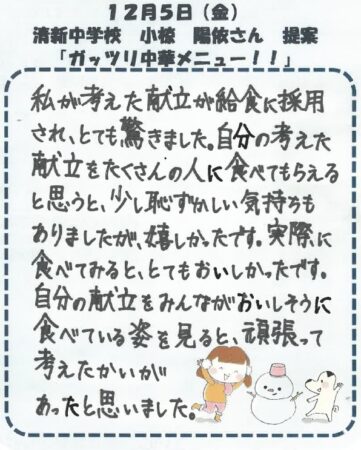 12月5日（金）
清新中学校　小椋　陽依さん　提案
「ガッツリ中華メニュー！！」
私が考えた献立が給食に採用
され、とても驚きました。自分の考えた
献立をたくさんの人に食べてもらえる
と思うと、少し恥ずかしい気持ちも
ありましたが、嬉しかったです。実際に
食べてみると、とてもおいしかったです。
自分の献立をみんながおいしそうに
食べている姿を見ると、頑張って
考えたかいが
あったと思いました。